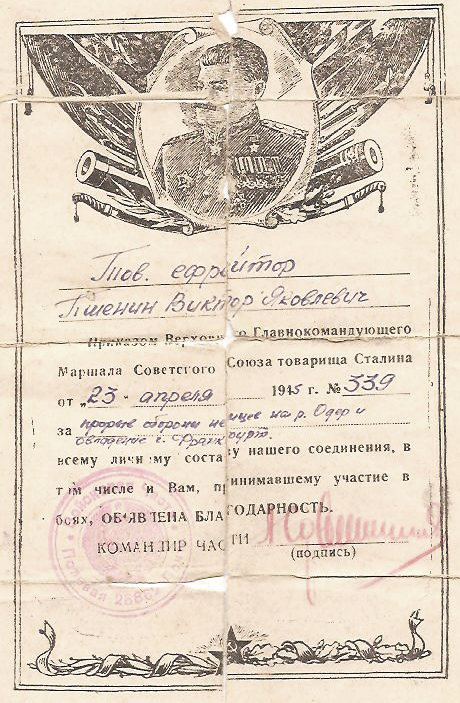 Тов. ефрейтор
Пшенин Виктор Яковлевич
Приказом Верховного Главнокомандующего
Маршала Советского Союза товарища Сталина
от „23" апреля 1945 г. № 339
за прорыв обороны немцев на р. Одер и
овладение г. Франкфурт.
всему личному составу нашего соединения, в
том числе и Вам, принимавшему участие в
боях, ОБ'ЯВЛЕНА БЛАГОДАРНОСТЬ.
КОМАНДИР ЧАСТИ
(подпись)
Полевая